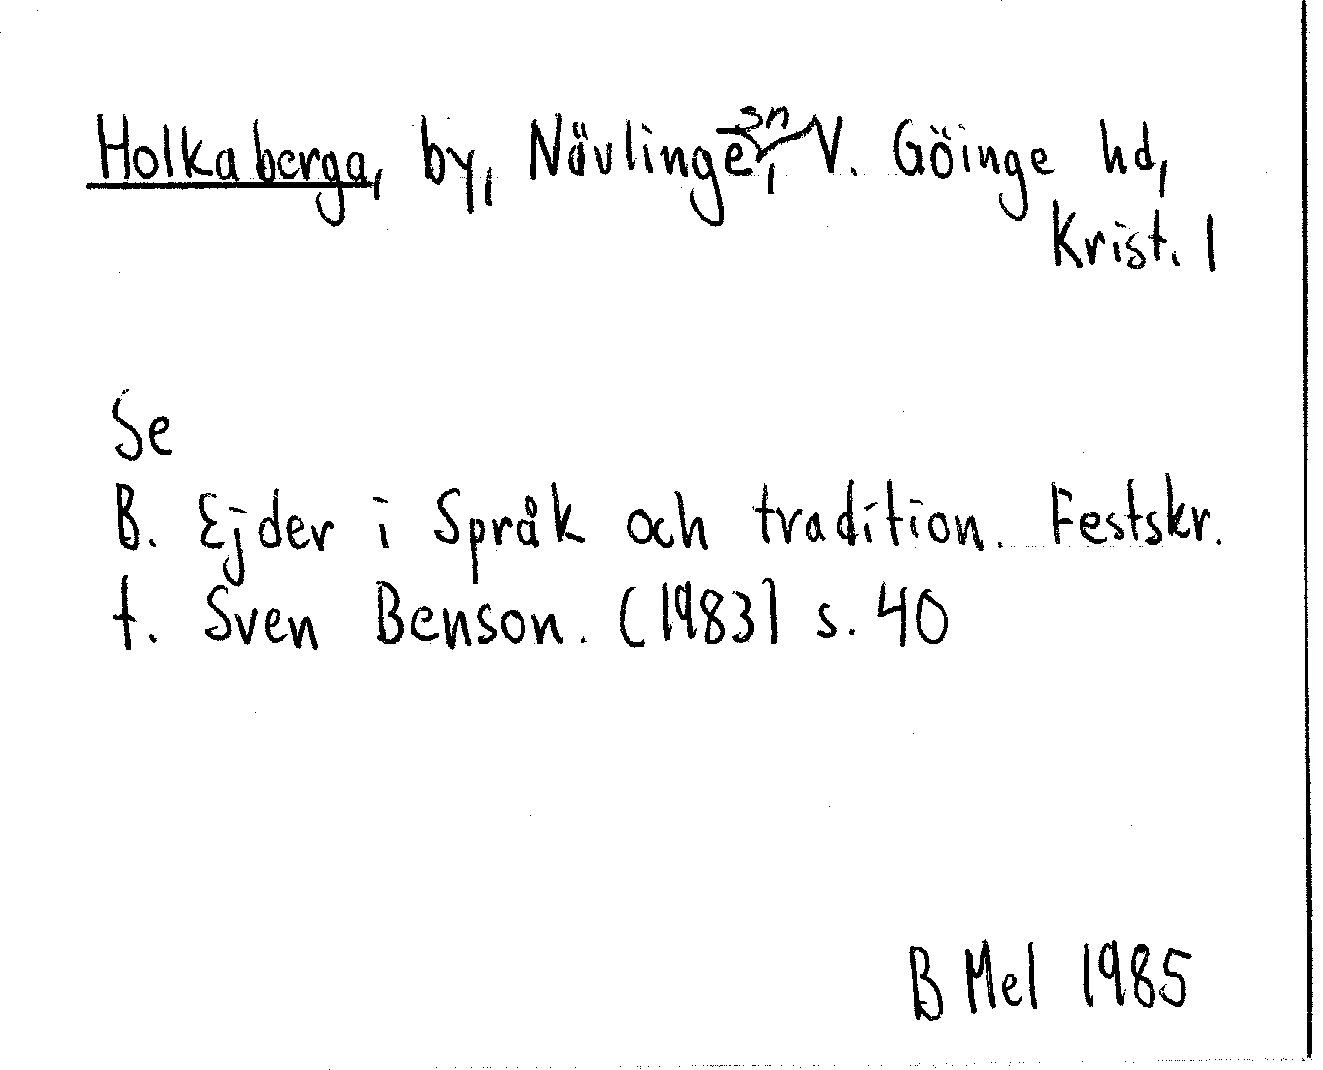 Holkaberga, by, Nävlinge sn, V. Göinge hd,
Krist. l
Se
B. Ejder i Språk och tradition. Festskr.
t. Sven Benson. (1983) s. 40
B Mel 1985